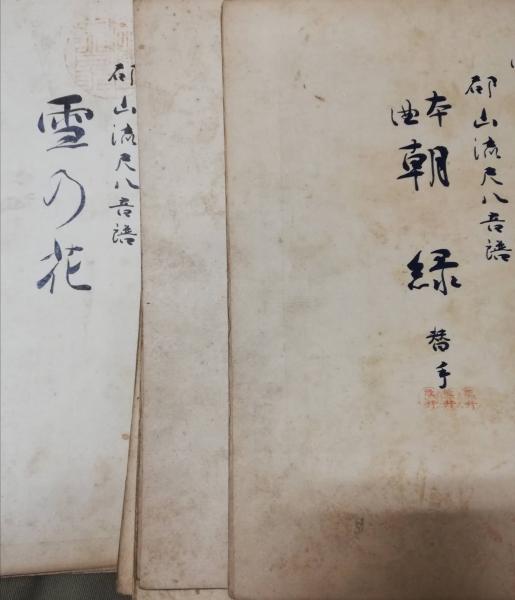 都山流尺八音譜
本曲
朝緑 替手
都山流尺八音譜
雪の花